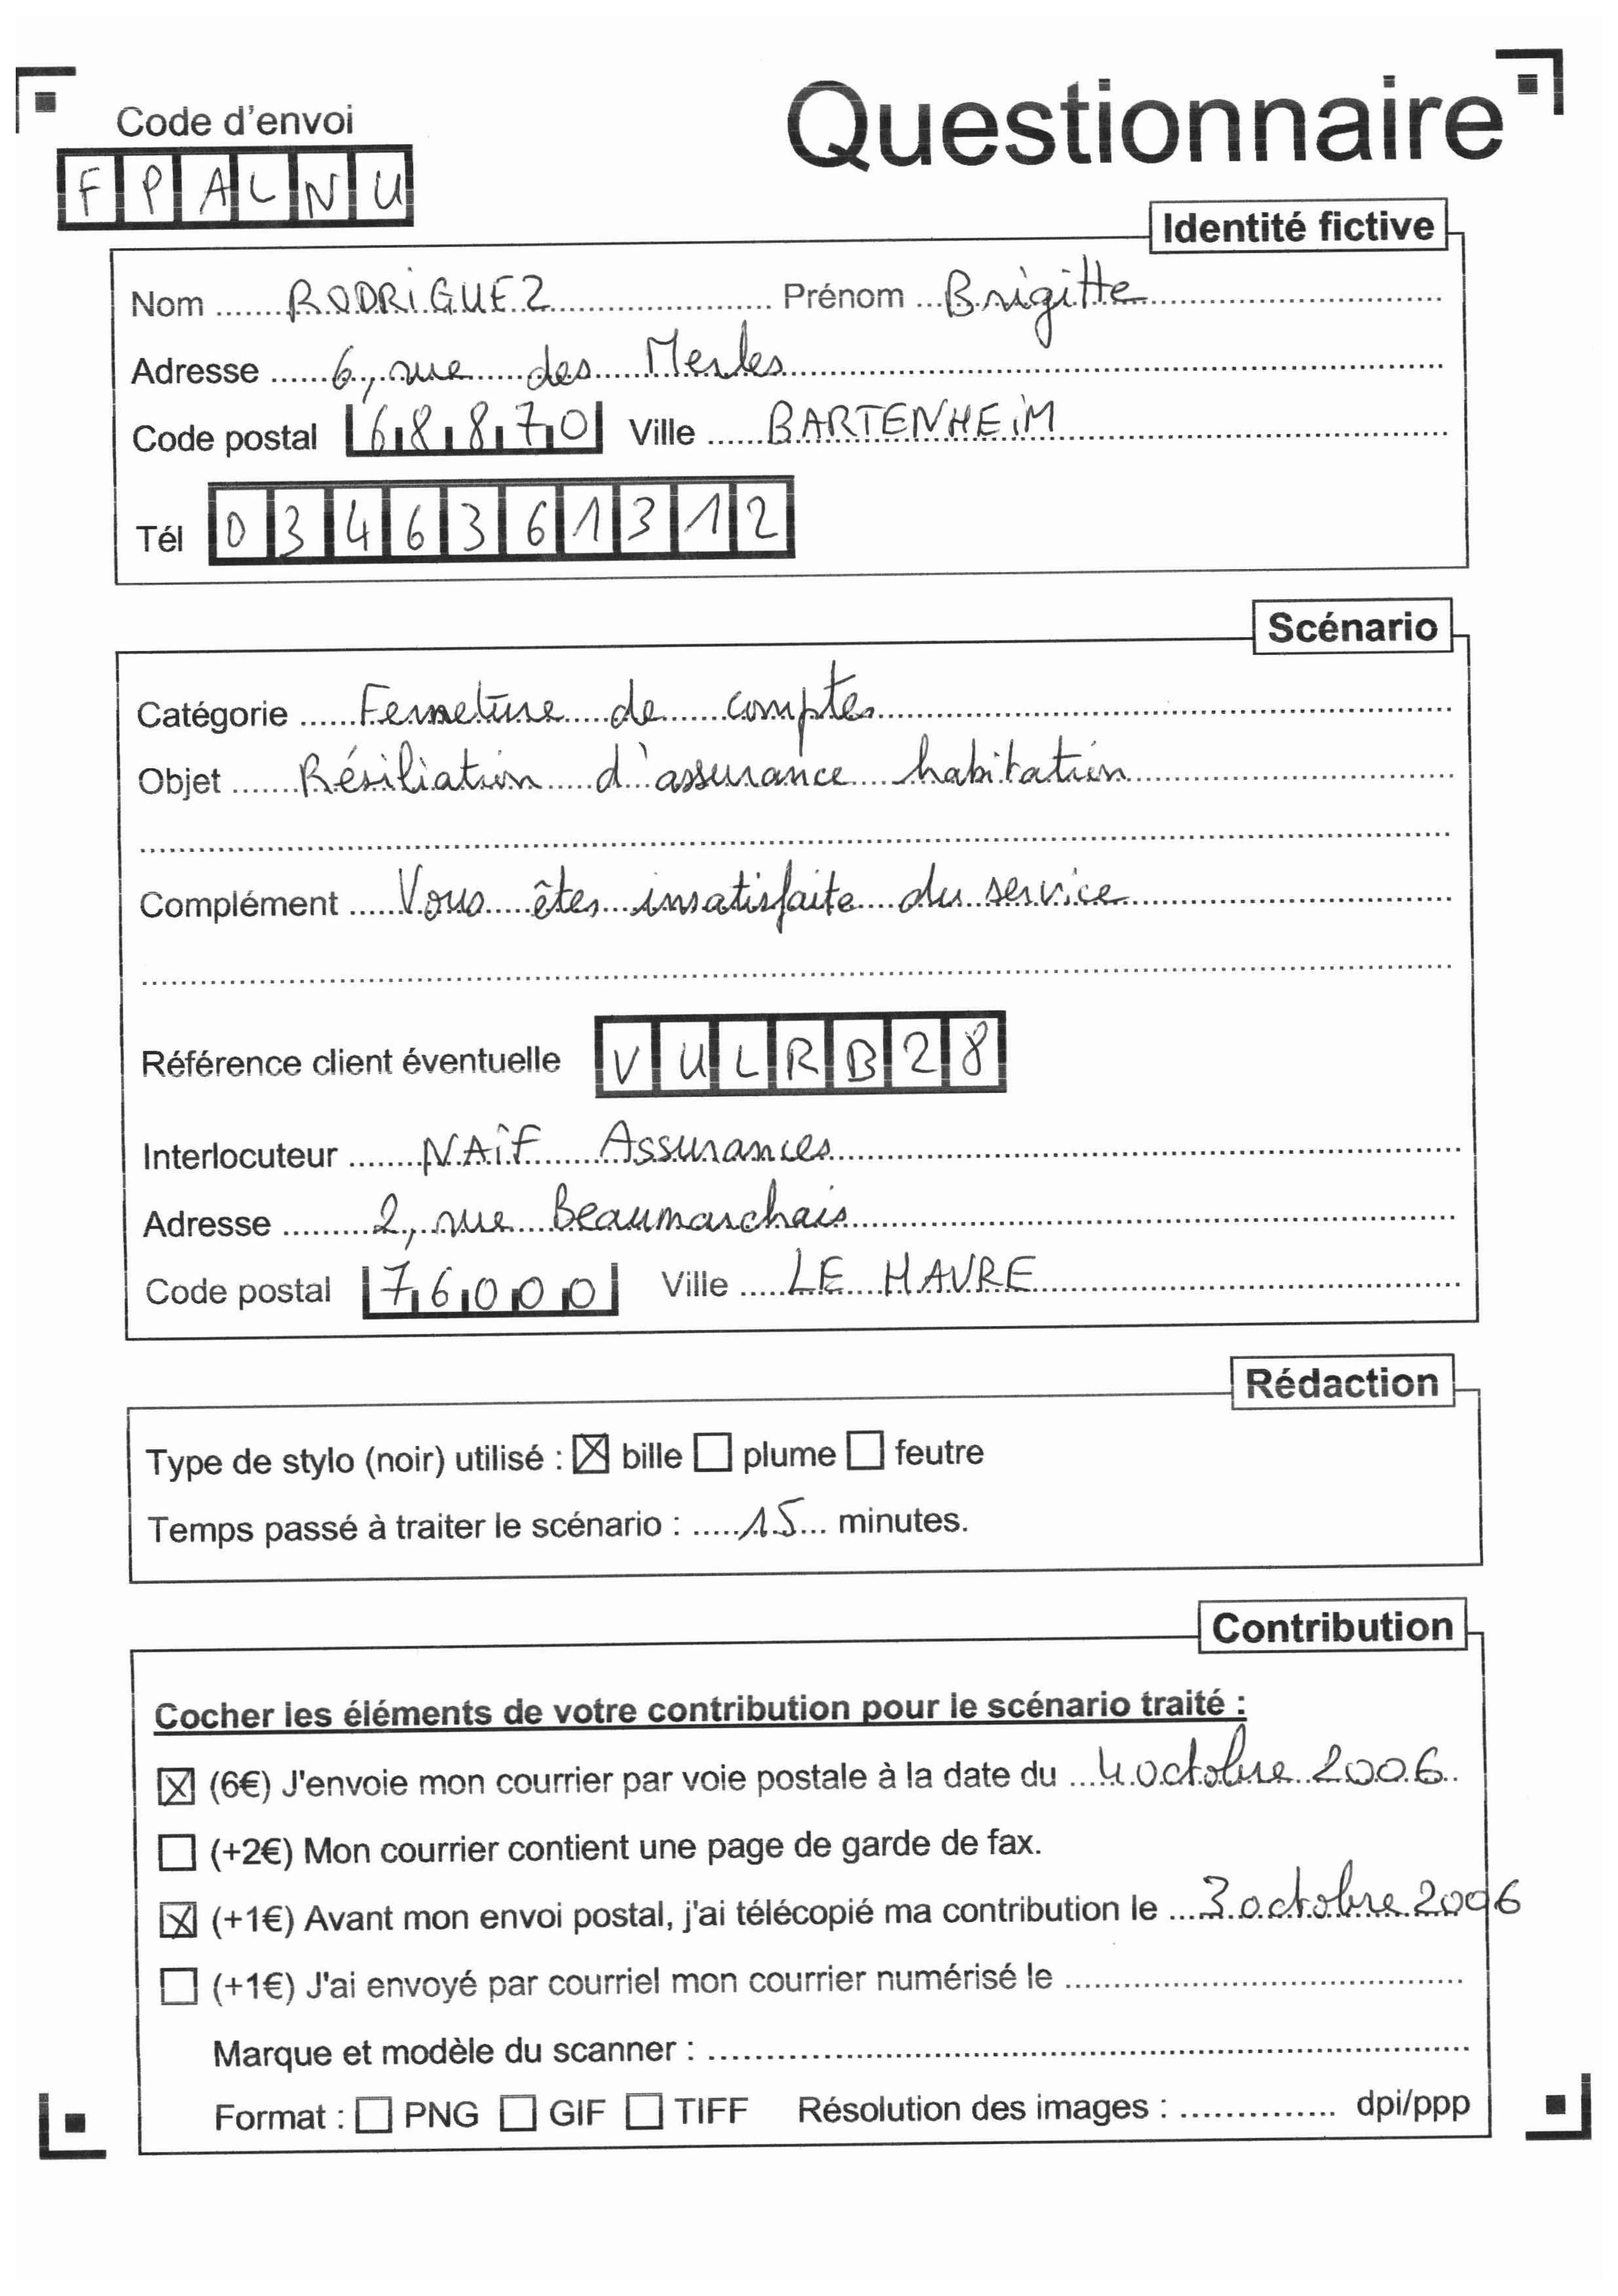 Questionnaire
Code d'envoi
FPALNU
Identité fictive
Nom RODRIGUEZ Prénom Brigitte
Adresse 6, rue des Merles
Code postal 68870 Ville BARTENHEIM
Tél 0346361312
Scénario
Catégorie Fermeture de comptes
Objet Résiliation d'assurance habitation
Complément Vous êtes insatisfaite du service
Référence client éventuelle VULRB28
Interlocuteur NAÎF Assurances
Adresse 2, rue Beaumarchais
Code postal 76000 Ville LE HAVRE
Rédaction
Type de stylo (noir) utilisé : ☒ bille ☐ plume ☐ feutre
Temps passé à traiter le scénario : 15 minutes.
Contribution
Cocher les éléments de votre contribution pour le scénario traité :
☒ (6€) J'envoie mon courrier par voie postale à la date du 4 octobre 2006
☐ (+2€) Mon courrier contient une page de garde de fax.
☒ (+1€) Avant mon envoi postal, j'ai télécopié ma contribution le 3 octobre 2006
☐ (+1€) J'ai envoyé par courriel mon courrier numérisé le
Marque et modèle du scanner :
Format : ☐ PNG ☐ GIF ☐ TIFF Résolution des images : dpi/ppp